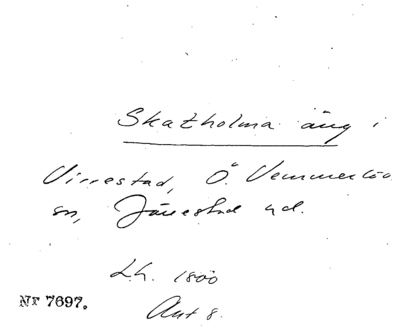 Skatholma äng i
Virrestad, Ö. Vemmerlöv
sn, Järrestad hd.
Lh. 1800
Akt 8.
Nr 7697.